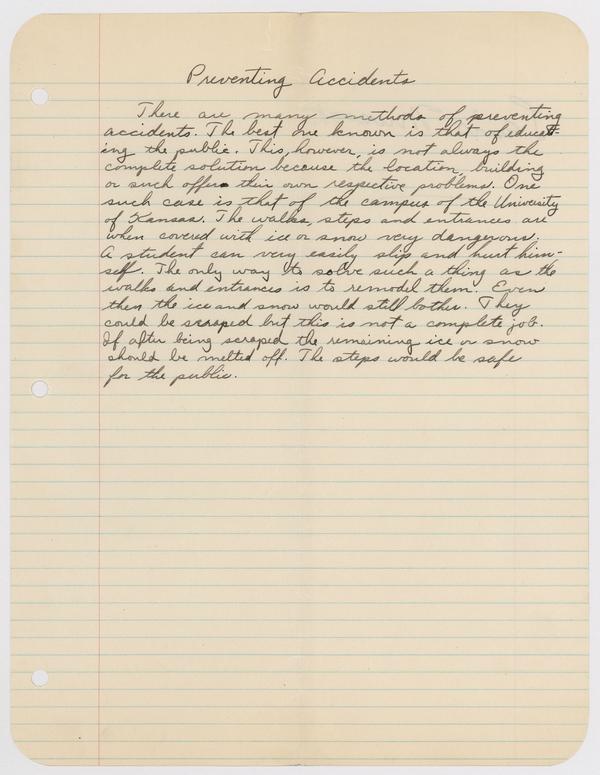 Preventing Accidents
There are many methods of preventing
accidents. The best one known is that of educat-
ing the public. This, however, is not always the
complete solution because the location, building
or such offers their own respective problems. One
such case is that of the campus of the University
of Kansas. The walks, steps and entrances are
when covered with ice or snow very dangerous.
A student can very easily slip and hurt him-
self. The only way to solve such a thing as the
walks and entrances is to remodel them. Even
then the ice and snow would still bother. They
could be scraped but this is not a complete job.
If after being scraped the remaining ice or snow
should be melted off. The steps would be safe
for the public.